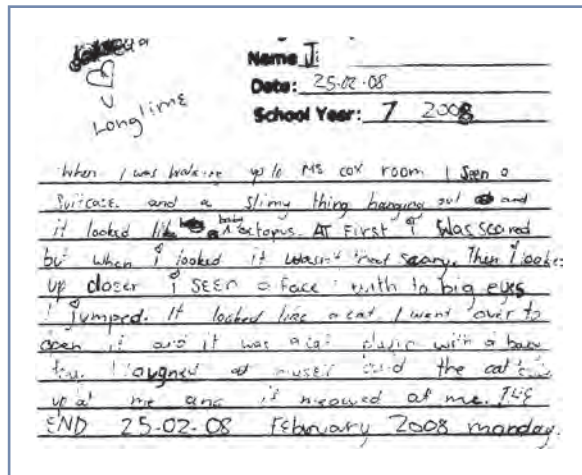 U
Long time
Name Ji
Date: 25-02-08
School Year: 7 2008
When I was walking up to MS cox room I seen a
Suitcase. and a slimy thing hanging out and
it looked like baby octopus. AT First i was scared
but when i looked it wasn't that scary. Then i looked
up closer i SEEN a face with to big eyes
I jumped. It looked like a cat. I went over to
open it and it was a cat playing with a baby
toy. I laughed at myself and the cat
up at me and it meowed at me. THE
END 25-02-08 February 2008 monday.